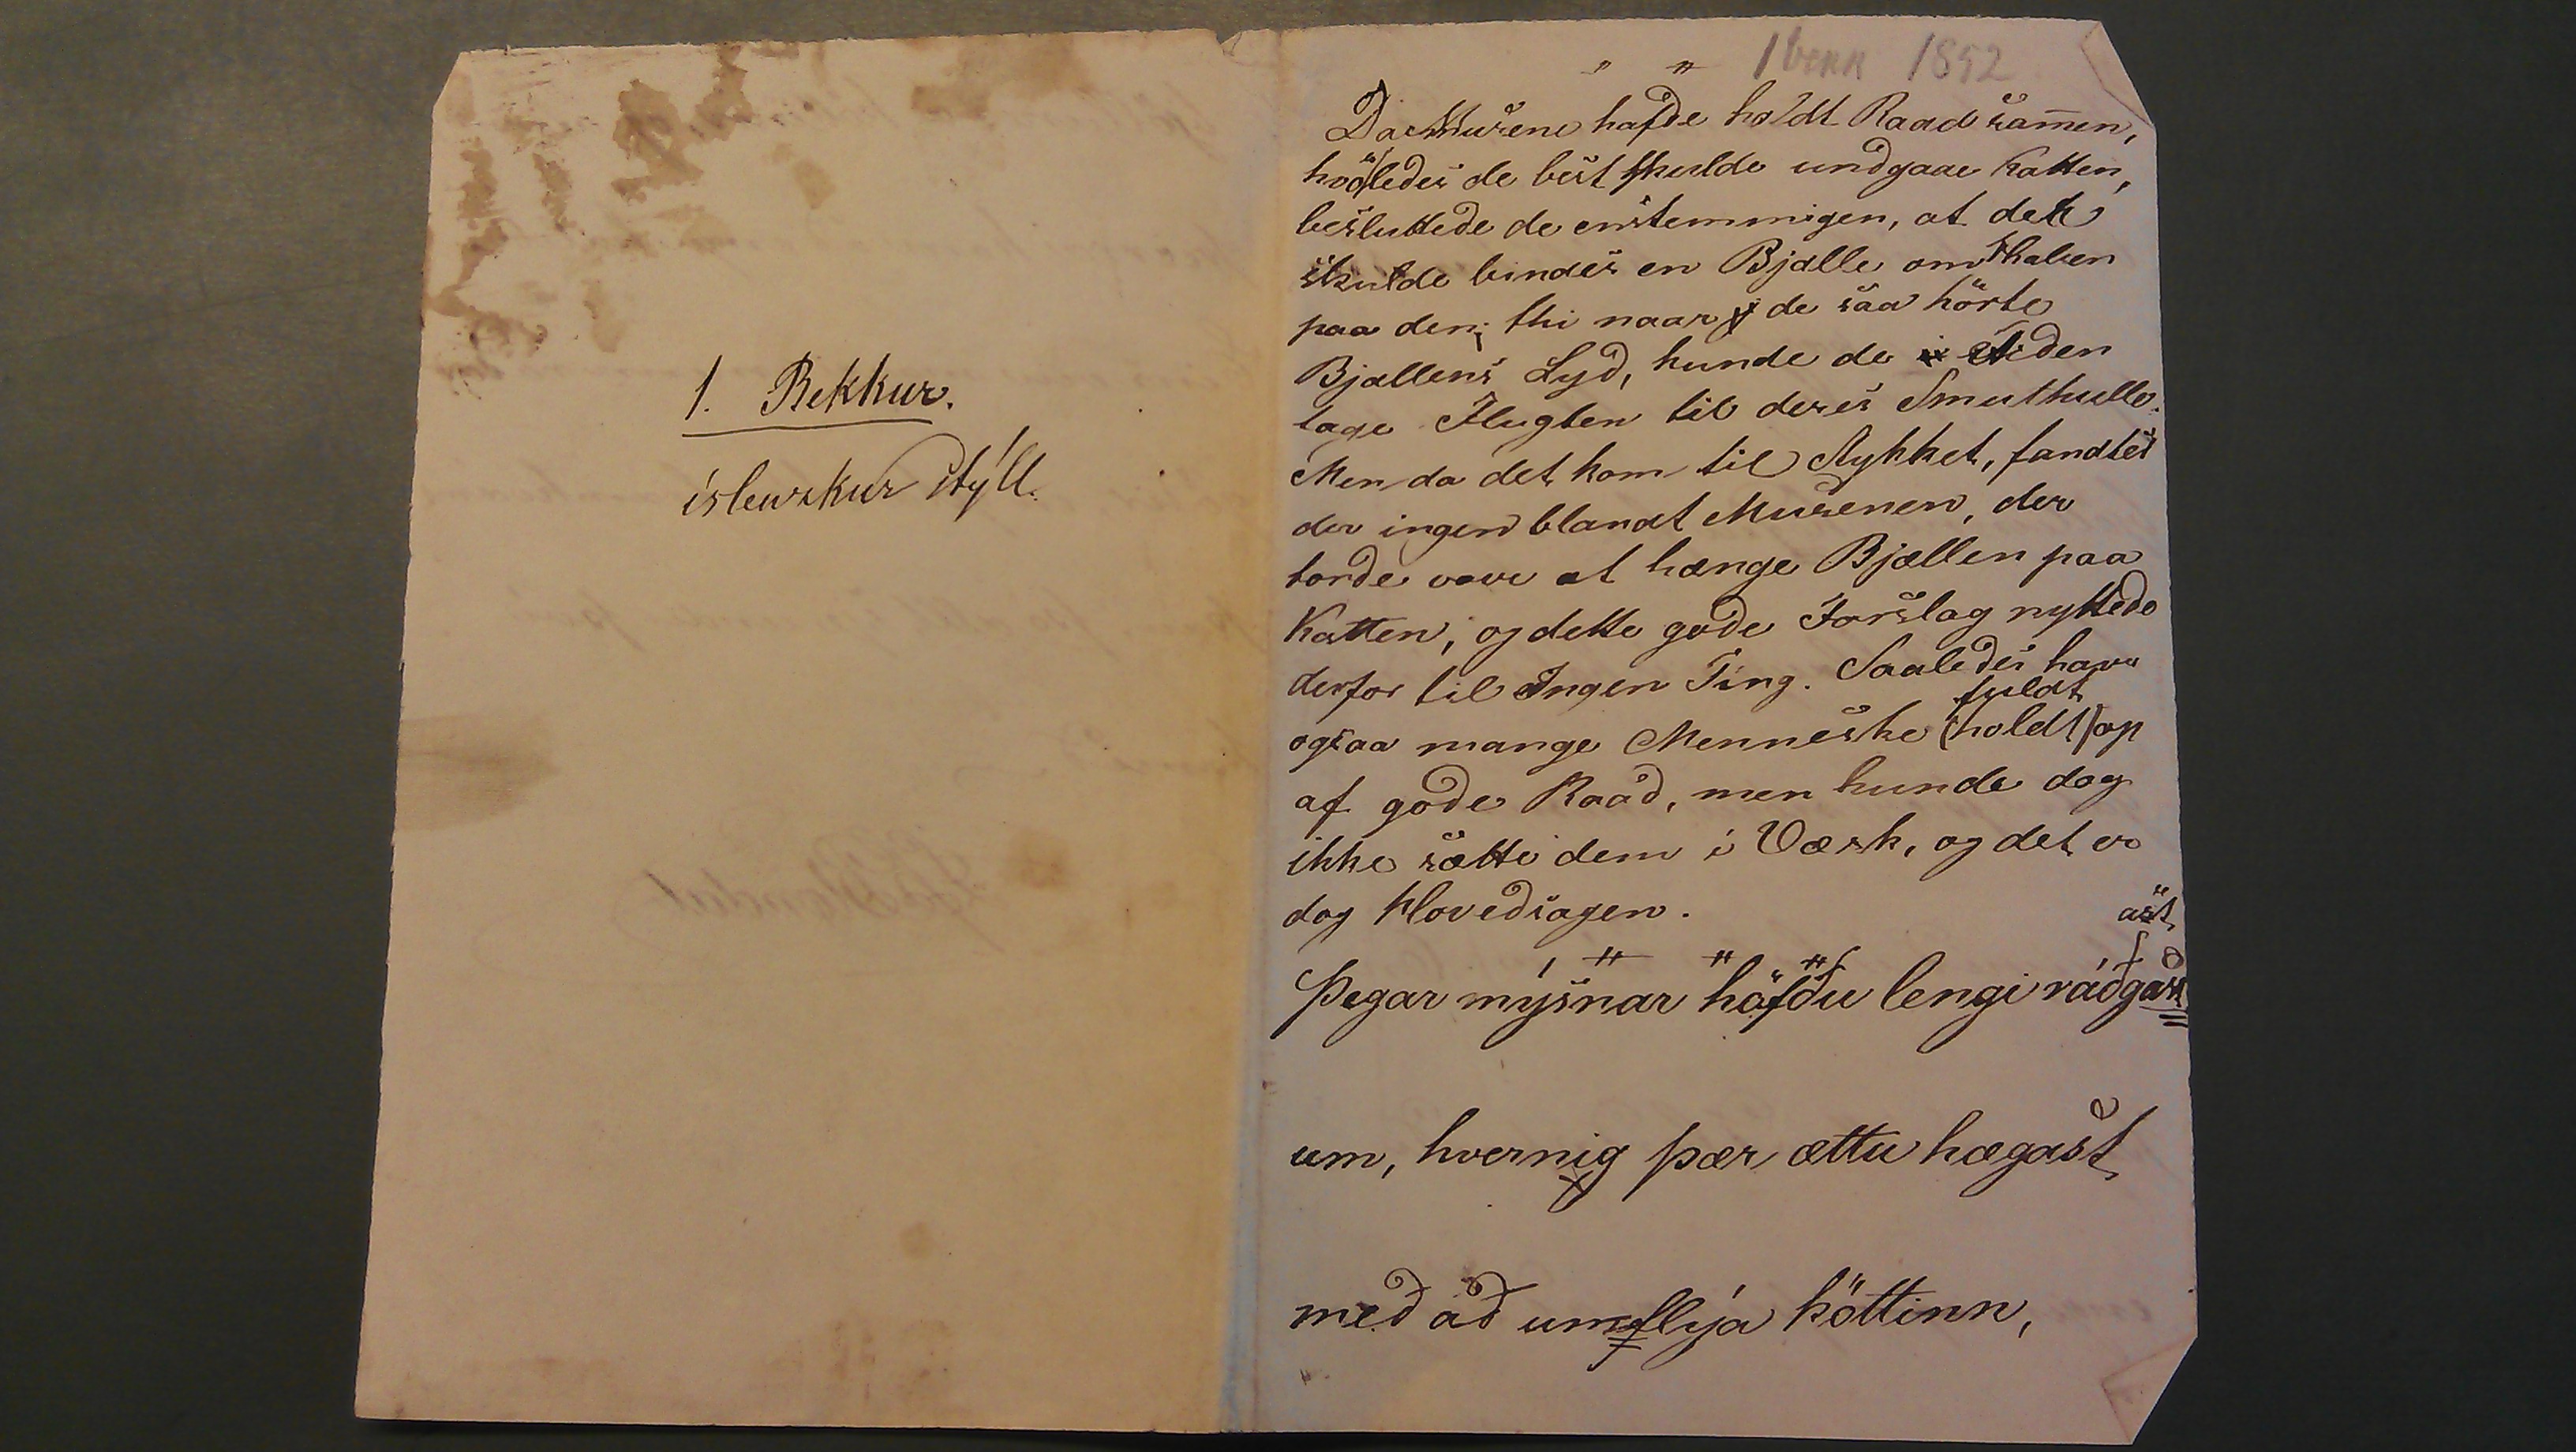 1. Bekkur.
íslenzkur stýll.
1852
Da Musene hafde holdt Raad samen,
hvoledes de best skulde undgaae Katten,
besluttede de enstemmigen, at der
skulde bindes en Bjælle om Halsen
paa den; thi naar de saa hörte
Bjællens Lyd, kunde de i Tiden
tage Flugten til deres Smuthulle.
Men da det kom til Stykket, fandtes
der ingen blandt Musenen, der
torde vove at hænge Bjællen paa
Katten, og dette gode Forslag nyttede
derfor til Ingen Ting. Saaledes have
fuldt
ogsaa mange Menneske (holdt) op
af gode Raad, men kunde dog
ikke sætte dem i Værk, og det er
dog Hovedsagen.
ast
Þegar mýsnar höfðu lengi ráðgast
um, hvernig þær ættu hægast
með að umflýja köttinn,